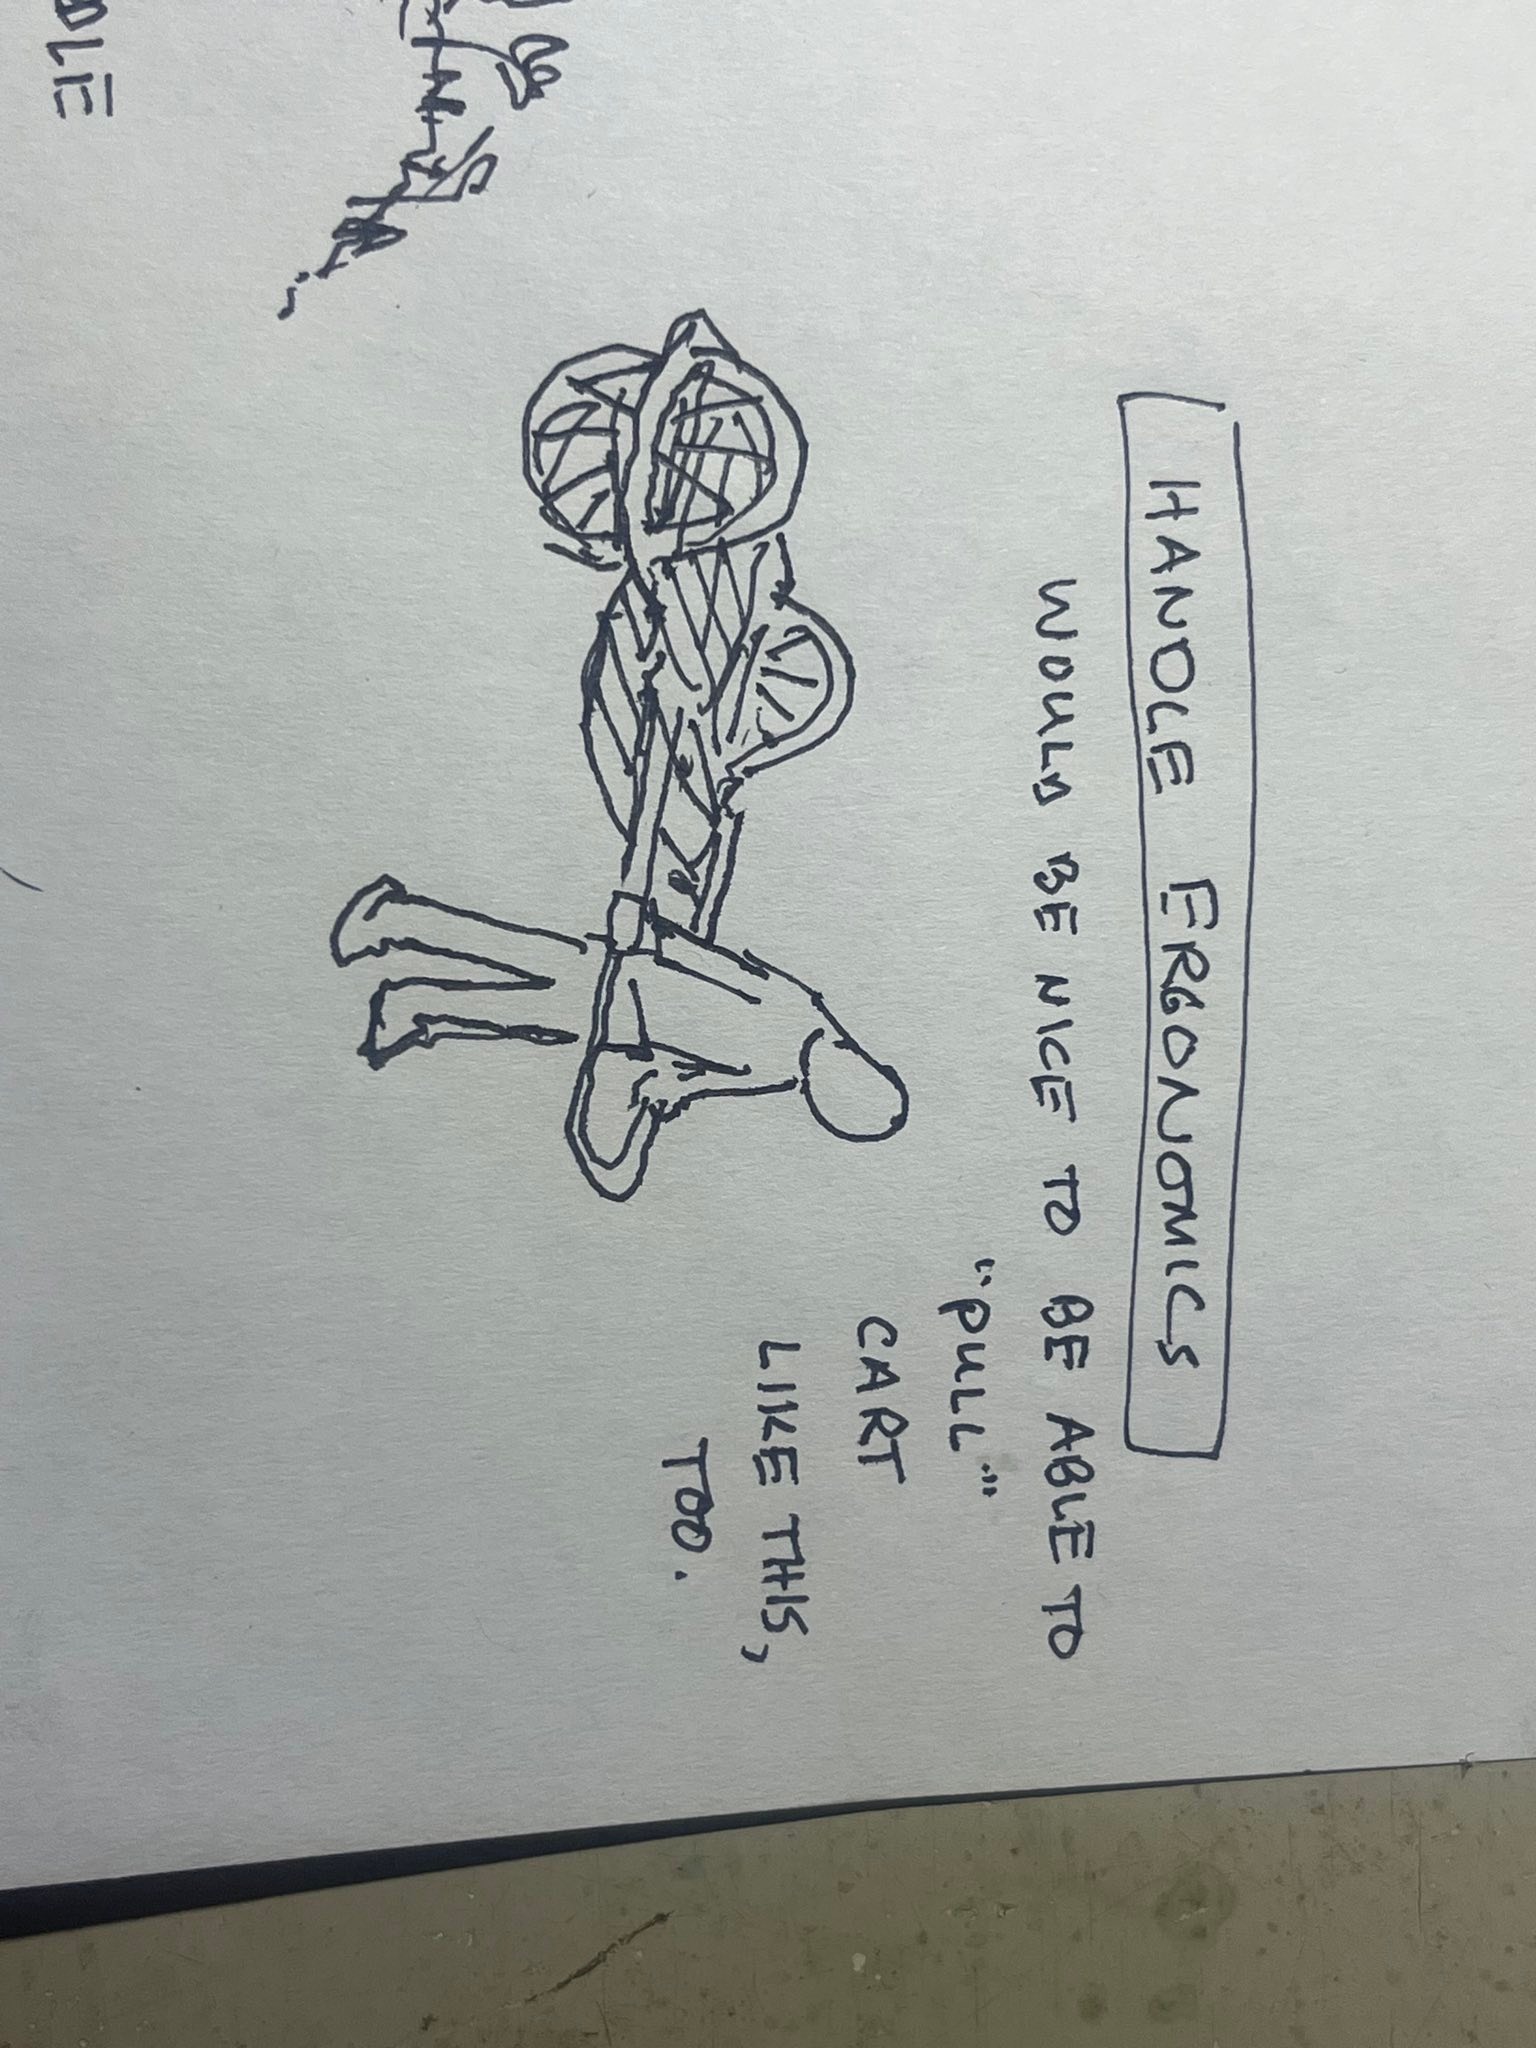 HANDLE ERGONOMICS
WOULD BE NICE TO BE ABLE TO
"PULL"
CART
LIKE THIS,
TOO.